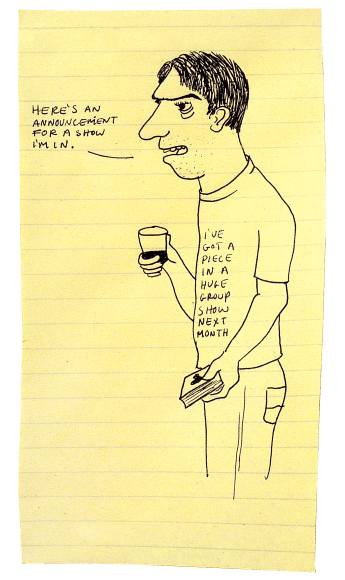 HERE'S AN
ANNOUNCEMENT
FOR A SHOW
I'M IN.
I'VE
GOT A
PIECE
IN A
HUGE
GROUP
SHOW
NEXT
MONTH